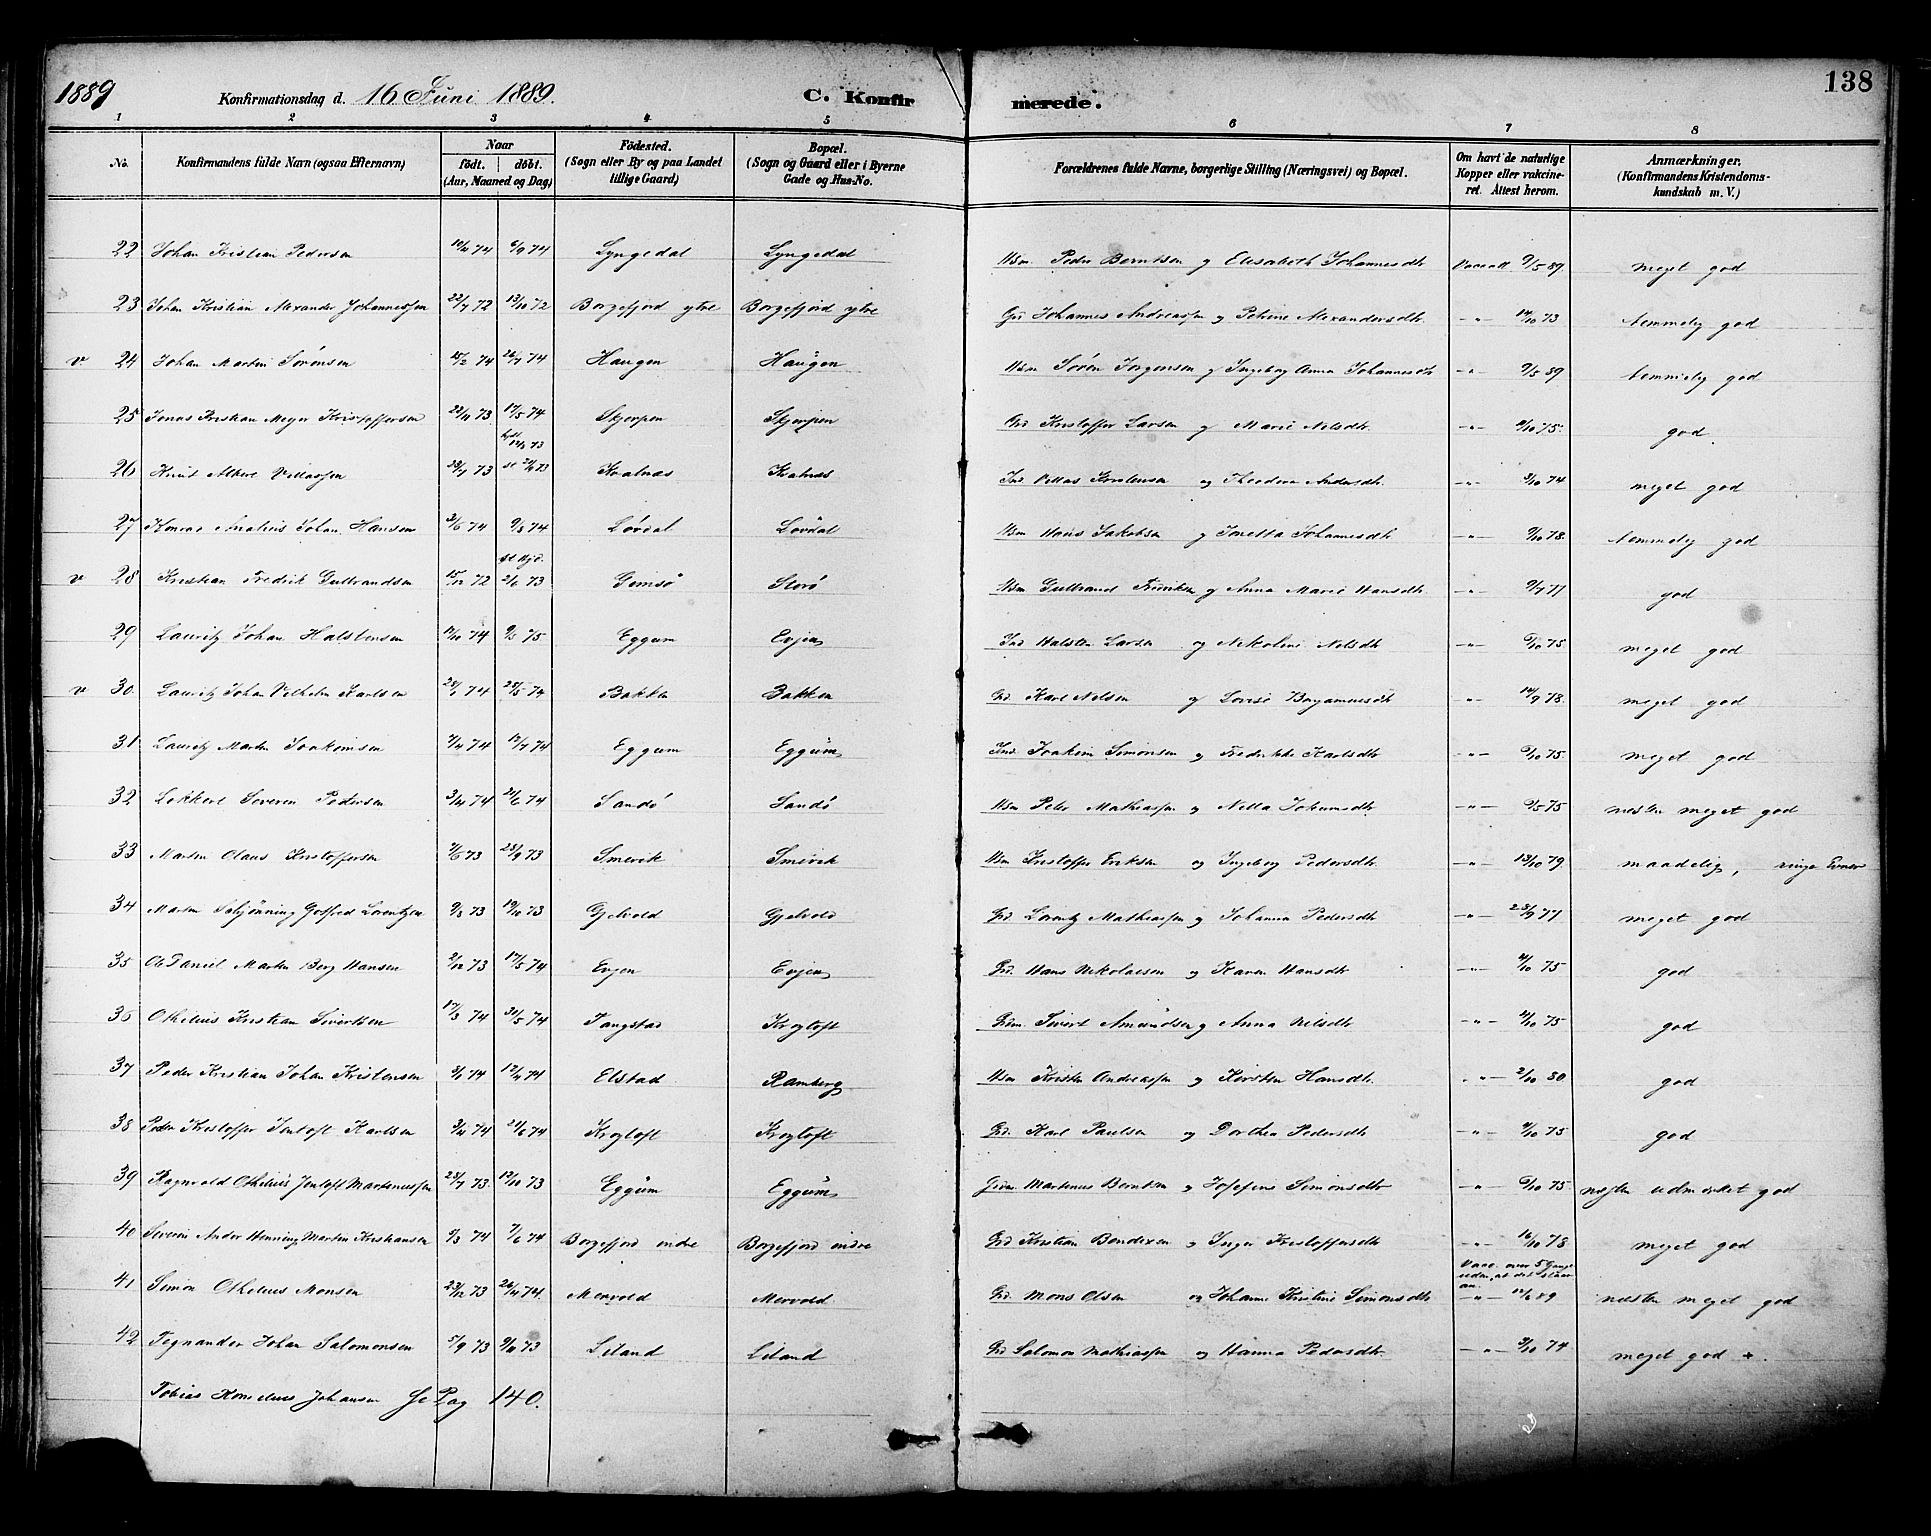 1889 Konfirmationsdag d. 16 Juni 1889. C. Konfirmerede. 138
1 2 3 4 5 6 7 8
No. Konfirmandens fulde Navn (ogsaa Efternavn) Naar født. døbt. (Aar, Maaned og Dag) Födested. (Sogn eller By og paa Landet tillige Gaard) Bopæl. (Sogn og Gaard eller i Byerne Gade og Hus-No. Forældrenes fulde Navne, borgerlige Stilling (Næringsvei) og Bopæl. Om havt de naturlige Kopper eller vakcineret. Attest herom. Anmærkninger. (Konfirmandens Kristendomskundskab m. V.)
22 Johan Kristian Pedersen 74 6/9 74 Lyngedal Lyngedal Peder Berntsen og Elisabeth Johannesdtr 9/5 89 meget god
23 Johan Kristian Alexander Johannessen 22/7 72 13/10 72 Borgefjord ytre Borgefjord ytre Johannes Andreassen og Petrine Alexandersdtr. -"- 14/10 73 temmelig god
v. 24 Johan Martin Sørensen 15/2 74 26/7 74 Haugen Haugen Søren Jørgensen og Ingeborg Anna Johannesdtr -"- 9/5 89 temmelig god
25 Jonas Kristian Meyer Kristoffersen 22/11 73 17/5 74 Skjerpen Skjerpen Kristoffer Larsen og Marie Nelsdtr. -"- 75. god.
26 Knut Albert Villassen 73 Kvalnæs Kvalnæs Ind. Villas Kristensen og Theodora Andersdtr. -"- 3/10 74 meget god
27 Konrad Johan Hansen 3/6 74 9/8 74 Løvdal Løvdal Hans Jakobsen og Jonetta Johannesdtr -"- 9/10 78. temmelig god
v 28 Kristian Fredrik Gulbrandsen 15/12 72 2/6 73 Gimsø Storø Gulbrand Fredriksen og Anna Marie Hansdtr. -"- 9/7 77 god
29 Lauritz Johan Halstensen 74 75 Eggum Evjen Ind Halsten Larsen og Nikoline Nelsdtr -"- 6/10 75 meget god
v 30 Lauritz Johan Vilhelm Karlsen 74 25/5 74 Bakken Bakken Karl Nelsen og Lovise -"- 14/9 78. meget god
31 Lauritz Martin Joakimsen 74 12/7 74 Eggum Eggum Ind. Joakim Simonsen og Fredrikke Karlsdtr. -"- 6/10 75. meget god
32 Lekkert Severin Pedersen 3/4 74 21/6 74 Sandø Sandø Peter Mathiassen og Netta Jokumsdtr. -"- 75 næsten meget god
33 Martin Olaus Kristoffersen 73 28/9 73 Smevik Smevik Kristoffer Eriksen og Ingeborg Pedersdtr. -"- 13/10 79. maadelig, ringe Evner
34 Martin Schjønning Gotfred Lorentzen 9/8 73 19/10 73 Gjelvold Gjelvold Lorentz Mathiassen og Johanna Pedersdtr -"- 77 meget god
35 Ole Daniel Martin Berg Hansen 2/12 73 17/5 74 Evjen Evjen Hans Nikolaisen og Karen Hansdtr -"- 4/10 75 god
36 Othelius Kristian Sivertsen 17/3 74 31/5 74 Tangstad Krogtoft Sivert Amundsen og Anna Nilsdtr -"- 4/10 75 god
37 Peder Kristian Johan Kristensen 74 12/4 74 Elstad Ramberg Kristen Andreassen og Kirsten Hansdtr. -"- 2/10 80 god
38 Peder Kristoffer Jentoft Karlsen 74 21/6 74 Krogtoft Krogtoft Karl Paulsen og Dorthea Pedersdtr -"- 75. god
39 Ragnvald Othelius Jentoft Martinussen 73. 12/10 73 Eggum Eggum Martinus Berntsen og Josefine Simonsdtr -"- 6/10 75. næsten udmerket god
40 Severin Ander Henning Martin Kristiansen 74 7/6 74 Borgefjord indre Borgefjord indre Kristian Bendixen og Inger Kristoffersdtr -"- 16/10 78 meget god
Vacc. over 5 Gange
uden, at det slaar
an.
41 Simon Othelius Monsen 23/12 73 26/4 74. Mervold Mervold Mons Olsen og Johanne Kristine Simonsdtr -"- 89 næsten meget god
42 Tegnander Johan Salomonsen 5/9 73 73 Liland Liland Salomon Mathiassen og Hanna Pedersdtr. -"- 3/10 74 meget god +.
Tobias Kornelius Johansen Se Pag 140.